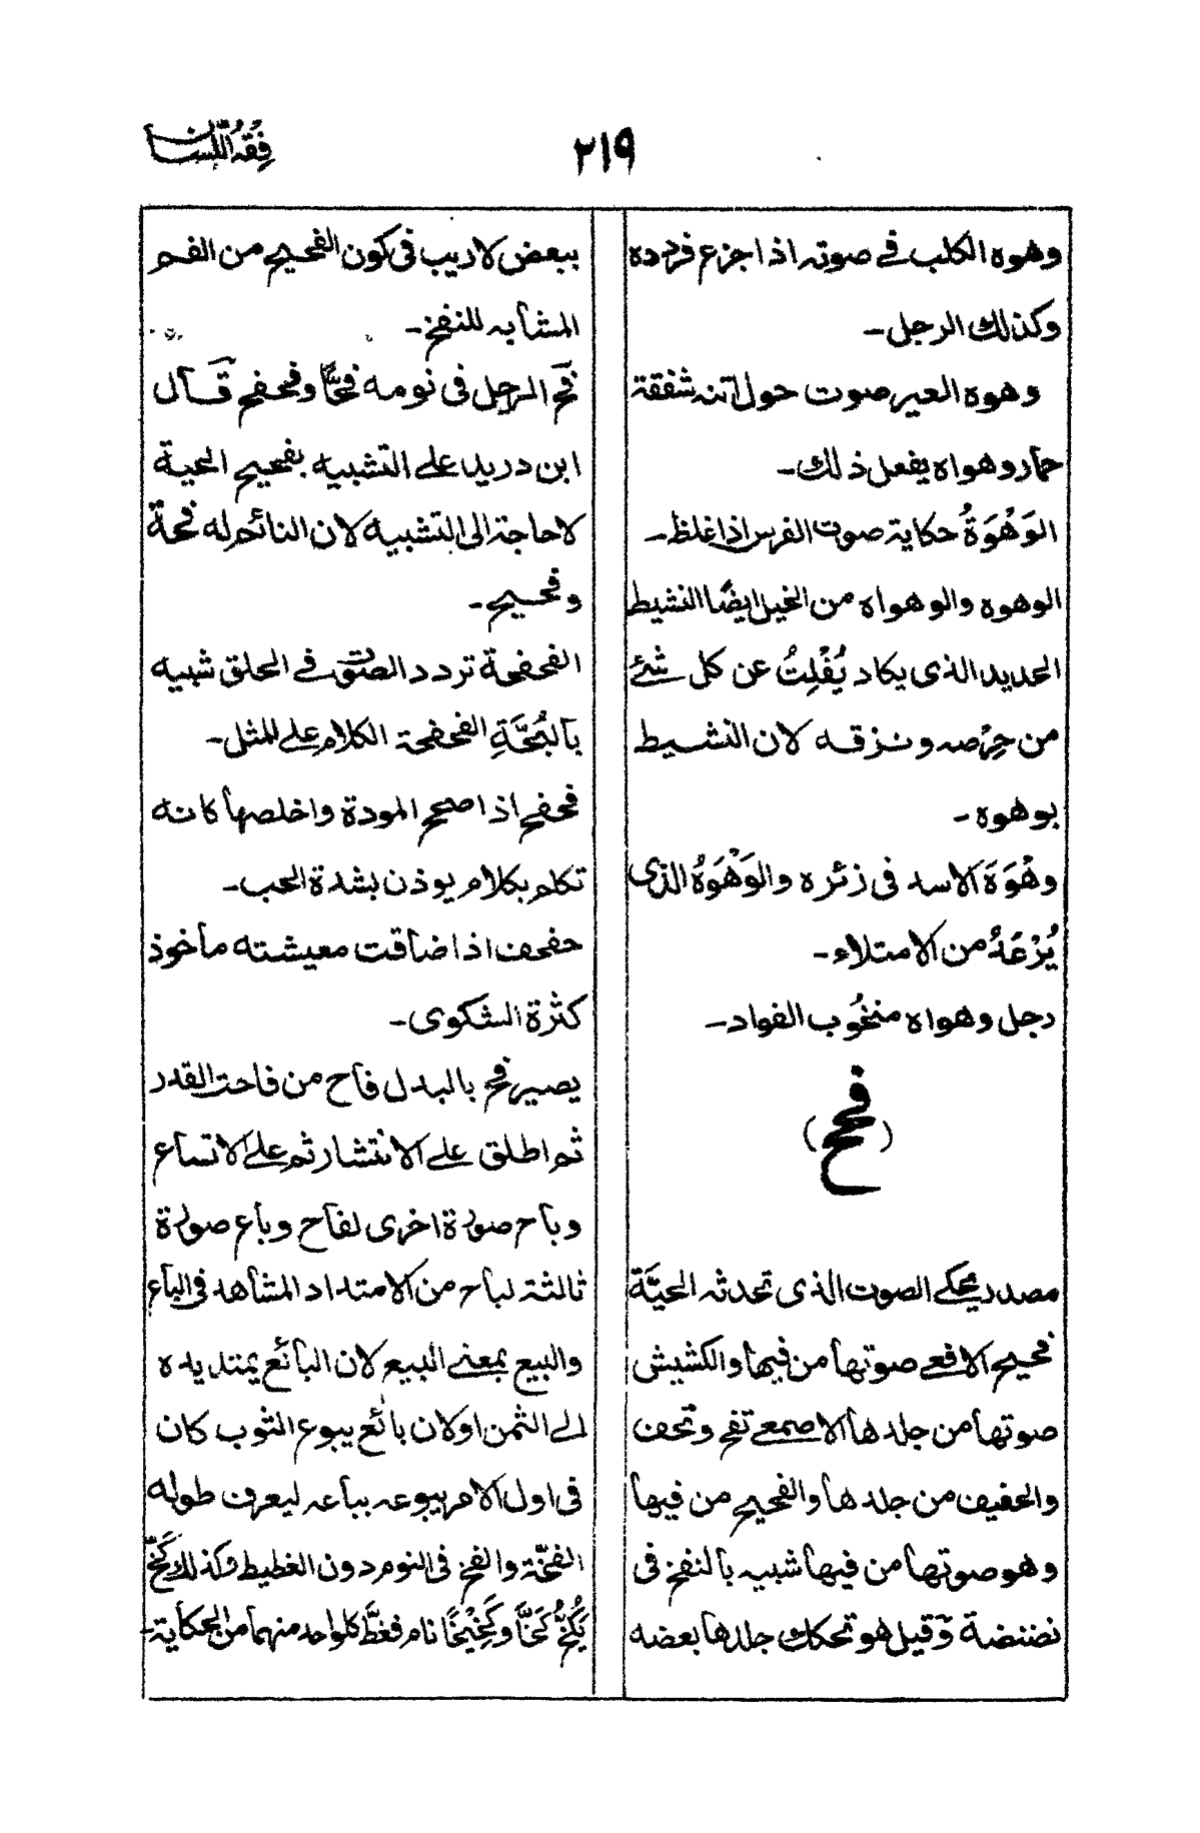 فِقهُ اللِّسان
٢١٩
وهوه الكلب فے صوته اذا جزع فردده
وكذلك الرجل۔
وهوه العير صوت حول اتنه شفقة
حمار وهواه يفعل ذلك۔
الوَهْوَةُ حكاية صوت الفرس اذا غلظ۔
الوهوه والوهواه من الخيل ايضًا النشيط
الحديد الذى يكاد يُفْلِتُ عن كل شئے
من حِرْصه ونزقه لان النشيط
يوهوه۔
وهْوَةَ الاسد فى زئره والوَهْوَهُ الذى
يُرْعَدُ من الامتلاء۔
رجل وهواه منخُوب الفواد۔
(فحح)
مصدر يحكے الصوت الذى تحدثه الحيَّة
فحيح الافعے صوتها من فيها والكشيش
صوتها من جلدها الاصمعے تفح وتحف
والحفيف من جلدها والفحيح من فيها
وهو صوتها من فيها شبيه بالنفخ فى
نضنضة وقيل هو تحكك جلدها بعضه
ببعض لاريب فى كون الفحيح من الفم
المشابه للنفخ۔
فحَّ الرجل فى نومه فحًّا وفحفح قال
ابن دريد على التشبيه بفحيح الحية
لاحاجة الى التشبيه لان النائم له فحة
وفحيح۔
الفحفحة تردد الصوت فے الحلق شبيه
بالبُحَّةِ الفحفحة الكلام علے المثل۔
فحفح اذا صحح المودة واخلصها كانه
تكلم بكلام يوذن بشدة الحب۔
حفحف اذا ضاقت معيشته ماخوذ
كثرة الشكوى۔
يصير فح بالبدل فاح من فاحت القدر
ثم اطلق علے الانتشار ثم علے الاتساع
وباح صورة اخرى لفاح وباع صورة
ثالثة لباح من الامتداد المشاهد فى الباع
والبيع بمعنے البيع لان البائع يمتد يده
الے الثمن اولان بائع يبوع الثوب كان
فى اول الامر يبوعه بباعه ليعرف طوله
الفخّة والفخ فى النوم دون الغطيط وكذلك كَخَّ
يَكُخُّ كَخًّا وكَخِيْخًا نام فغطَّ كلواحد منهما من الحكاية۔